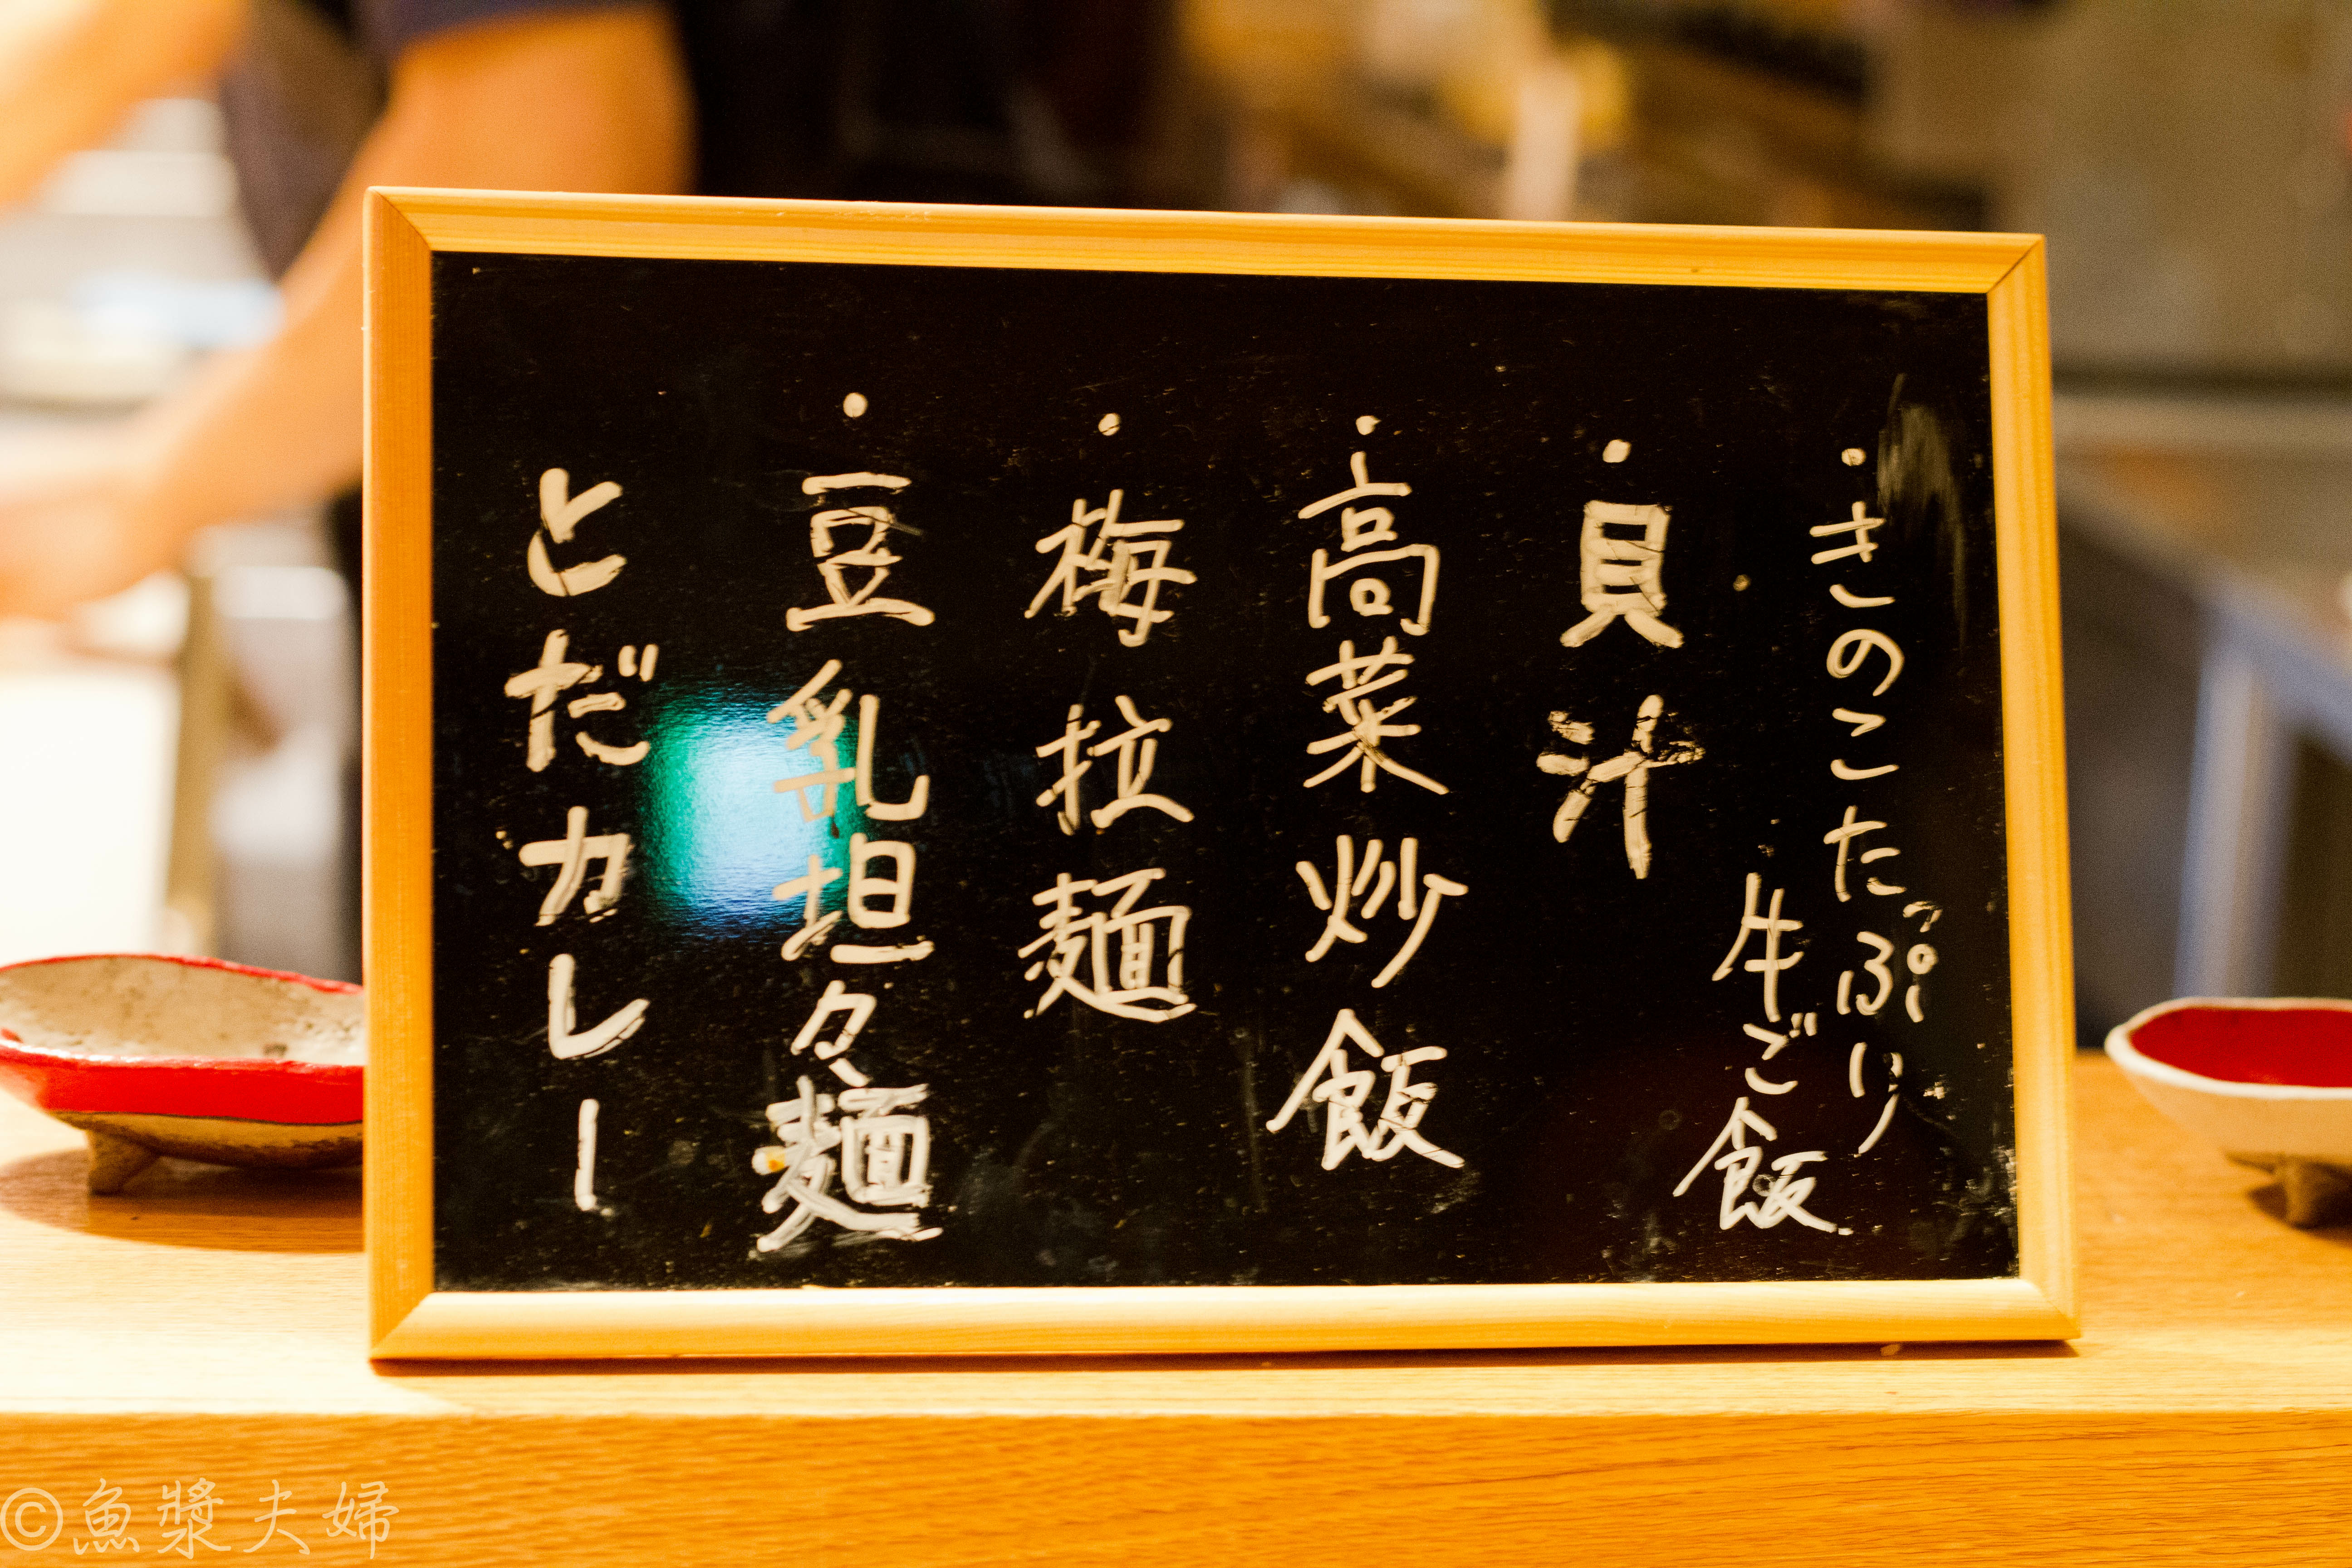 ・きのこたっぷり
牛ご飯
・貝汁
・高菜炒飯
・梅拉麺
・豆乳坦々麺
とだカレー
©魚漿夫婦